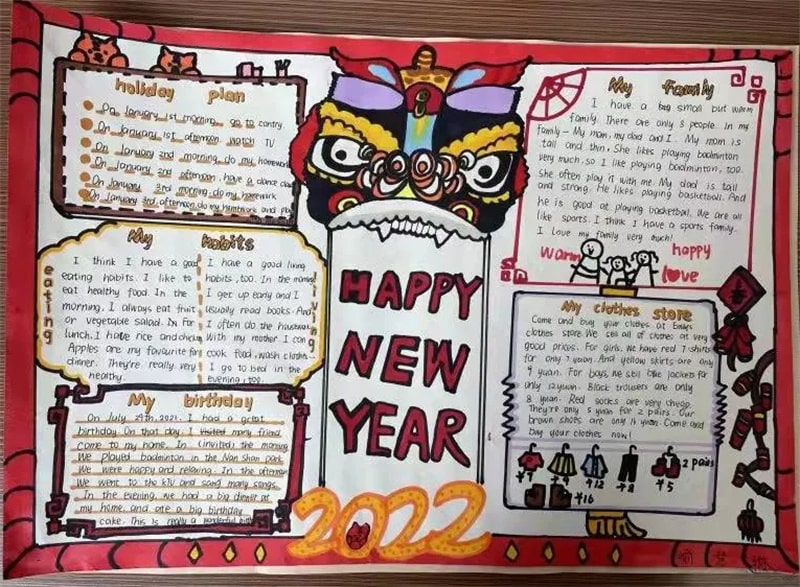 holiday plan
On January 1st morning, go to contry
On January 1st afternoon, watch TV
On January 2nd morning, do my homework
On January 2nd afternoon, have a dance class
On January 3rd morning, do my homework
On January 3rd afternoon, do my homework and play
My habits
eating
I think I have a good
eating habits. I like to
eat healthy food. In the
morning, I always eat fruit
or vegetable salad. In For
lunch, I have rice and chicken
Apples are my favourite for
dinner. They're really very
healthy.
living
I have a good living
habits, too. In the morning
I get up early and I
usually read books. And
I often do the housework
With my mother I can
cook food, wash clothes
I go to bed in the
evening, too.
My birthday
On July 29th, 2021. I had a great
birthday. On that day, I many friend
come to my home. In the morning
We played badminton in the Nan shan park.
We were happy and relaxing. In the afternoon
We went to the KTV and sang many songs.
In the evening, we had a big dinner at
my home, and ate a big birthday
cake. This is really a wonderful birth
HAPPY
NEW
YEAR
2022
My Family
I have a big small but warm
family. There are only 3 people in my
family – My mom, my dad and I. My mom is
tall and thin. She likes playing badminton
very much, so I like playing badminton, too.
She often play it with me. My dad is tall
and strong. He likes playing basketball. And
he is good at playing basketball. We are all
like sports. I think I have a sports family.
I love my family very much!
warm happy
love
My clothes store
Come and buy your clothes at
clothes store. We sell all of clothes at very
good prices. For girls, we have red T-shirts
for only 7 yuan. And yellow skirts are only
9 yuan. For boys, we sell blue jackets for
only 12 yuan. Black trousers are only
8 yuan. Red socks are very cheap.
They're only 5 yuan for 2 pairs. Our
brown shoes are only 16 yuan. Come and
buy your clothes now!
2 pairs
¥7 ¥9 ¥12 ¥8 ¥5
¥16